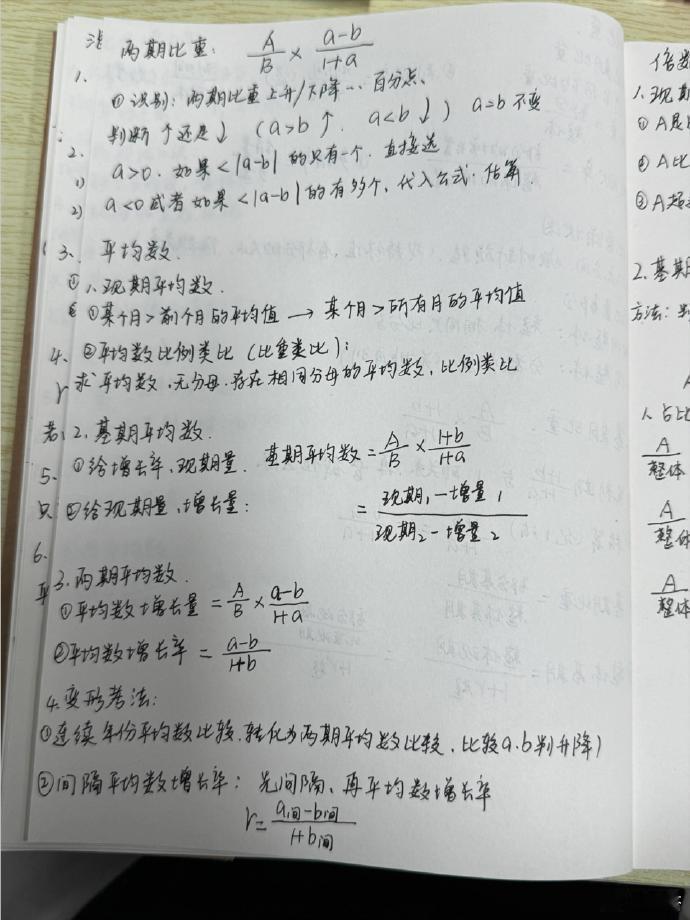 两期比重: A/B × (a-b)/(1+a)
1.
①识别: 两期比重上升/下降… 百分点.
判断↑还是↓ (a>b↑. a<b↓) a=b不变
2.
1) a>0. 如果<|a-b|的只有一个. 直接选
2) a<0或者如果<|a-b|的有多个, 代入公式.估算
3. 平均数.
1.现期平均数.
①某个月>前个月的平均值 → 某个月>所有月的平均值
4. ②平均数比例类比(比重类比):
求平均数,无分母.存在相同分母的平均数,比例类比
2.基期平均数.
5. ①给增长率,现期量. 基期平均数 = A/B × (1+b)/(1+a)
②给现期量,增长量: = (现期₁-增量₁)/(现期₂-增量₂)
6.
3.两期平均数.
①平均数增长量 = A/B × (a-b)/(1+a)
②平均数增长率 = (a-b)/(1+b)
4.变形考法:
①连续年份平均数比较.转化为两期平均数比较, 比较a.b判升降)
②间隔平均数增长率: 先间隔、再平均数增长率
r = (a间-b间)/(1+b间)
倍数
1.现期
①A是
②A比
③A超
2.基期
方法:
A
1.占比
A/整体
A/整体
A/整体